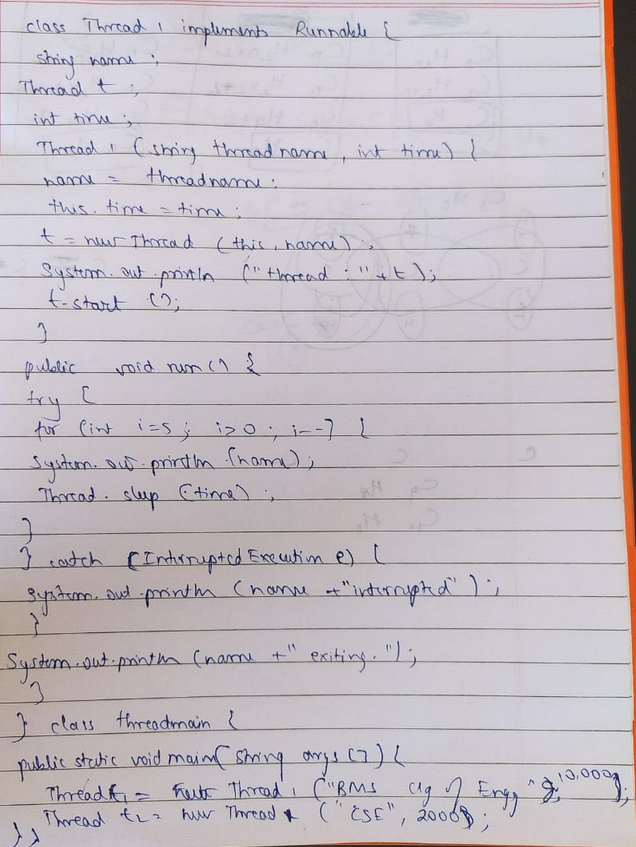 class Thread1 implements Runnable {
string name ;
Thread t ;
int time ;
Thread1 (string threadname, int time) {
name = threadname;
this.time = time;
t = new Thread (this, name);
System.out.println ("thread :" + t);
t.start ();
}
public void run() {
try {
for (int i=5 ; i>0 ; i--) {
System.out.println (name);
Thread.sleep (time) ;
}
} catch (InterruptedExecution e) {
System.out.println (name +"interrupted") ;
}
System.out.println (name +" exiting.");
}
} class threadmain {
public static void main( string args []) {
Thread t1 = new Thread1 ("BMS Clg of Engg", 10,000);
Thread t2 = new Thread ("CSE", 2000);
} }